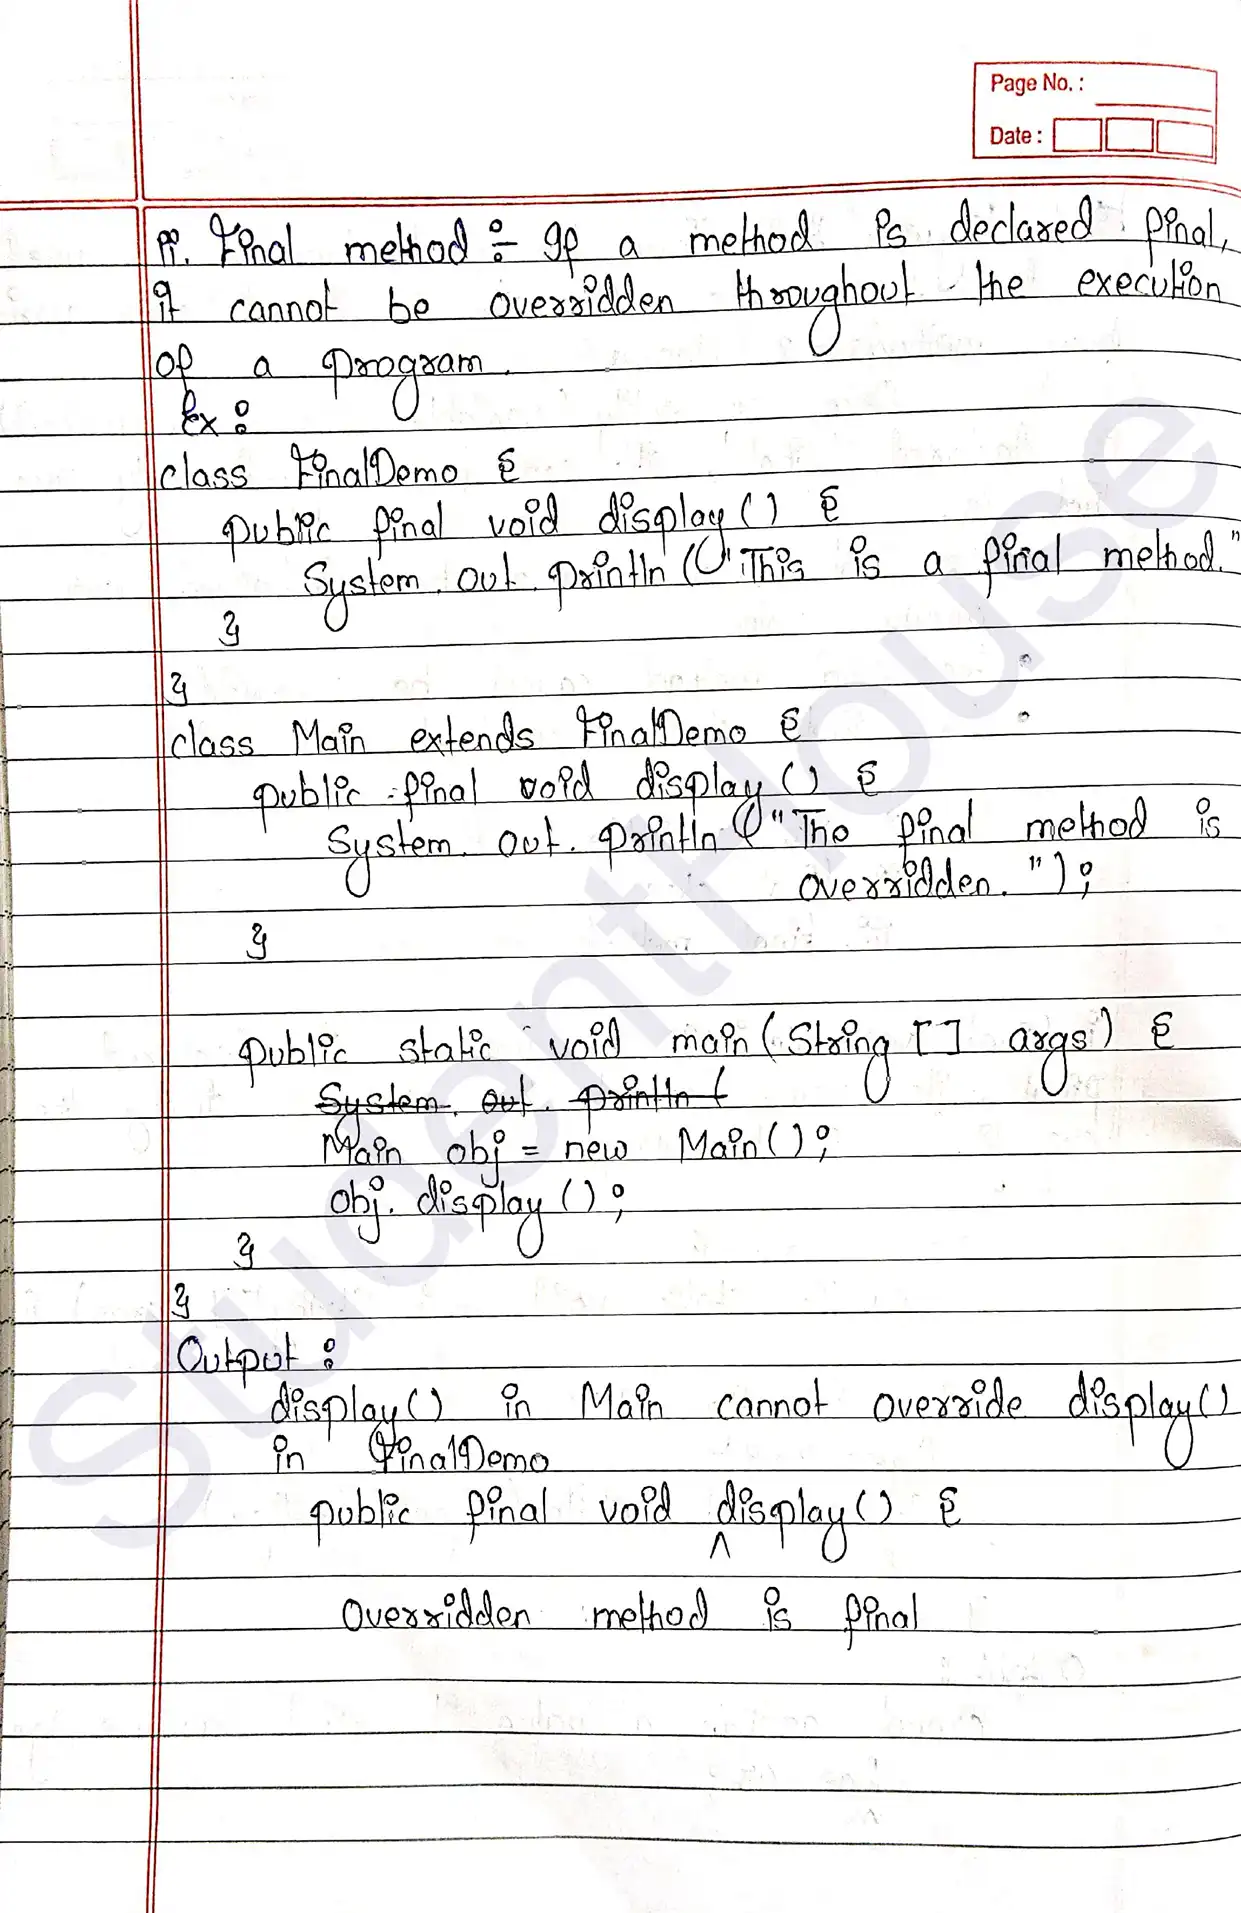 Page No. :
Date :
ii. Final method :- If a method is declared final,
it cannot be overridden throughout the execution
of a program.
Ex :
class FinalDemo {
public final void display () {
System. out. println ("This is a final method."
}
}
class Main extends FinalDemo {
public final void display () {
System. out. println ("The final method is
overridden. ");
}
public static void main (String [] args) {
System. out. println (
Main obj = new Main();
obj. display ();
}
}
Output :
display() in Main cannot override display()
in FinalDemo
public final void display() {
^
Overridden method is final
StudentHouse